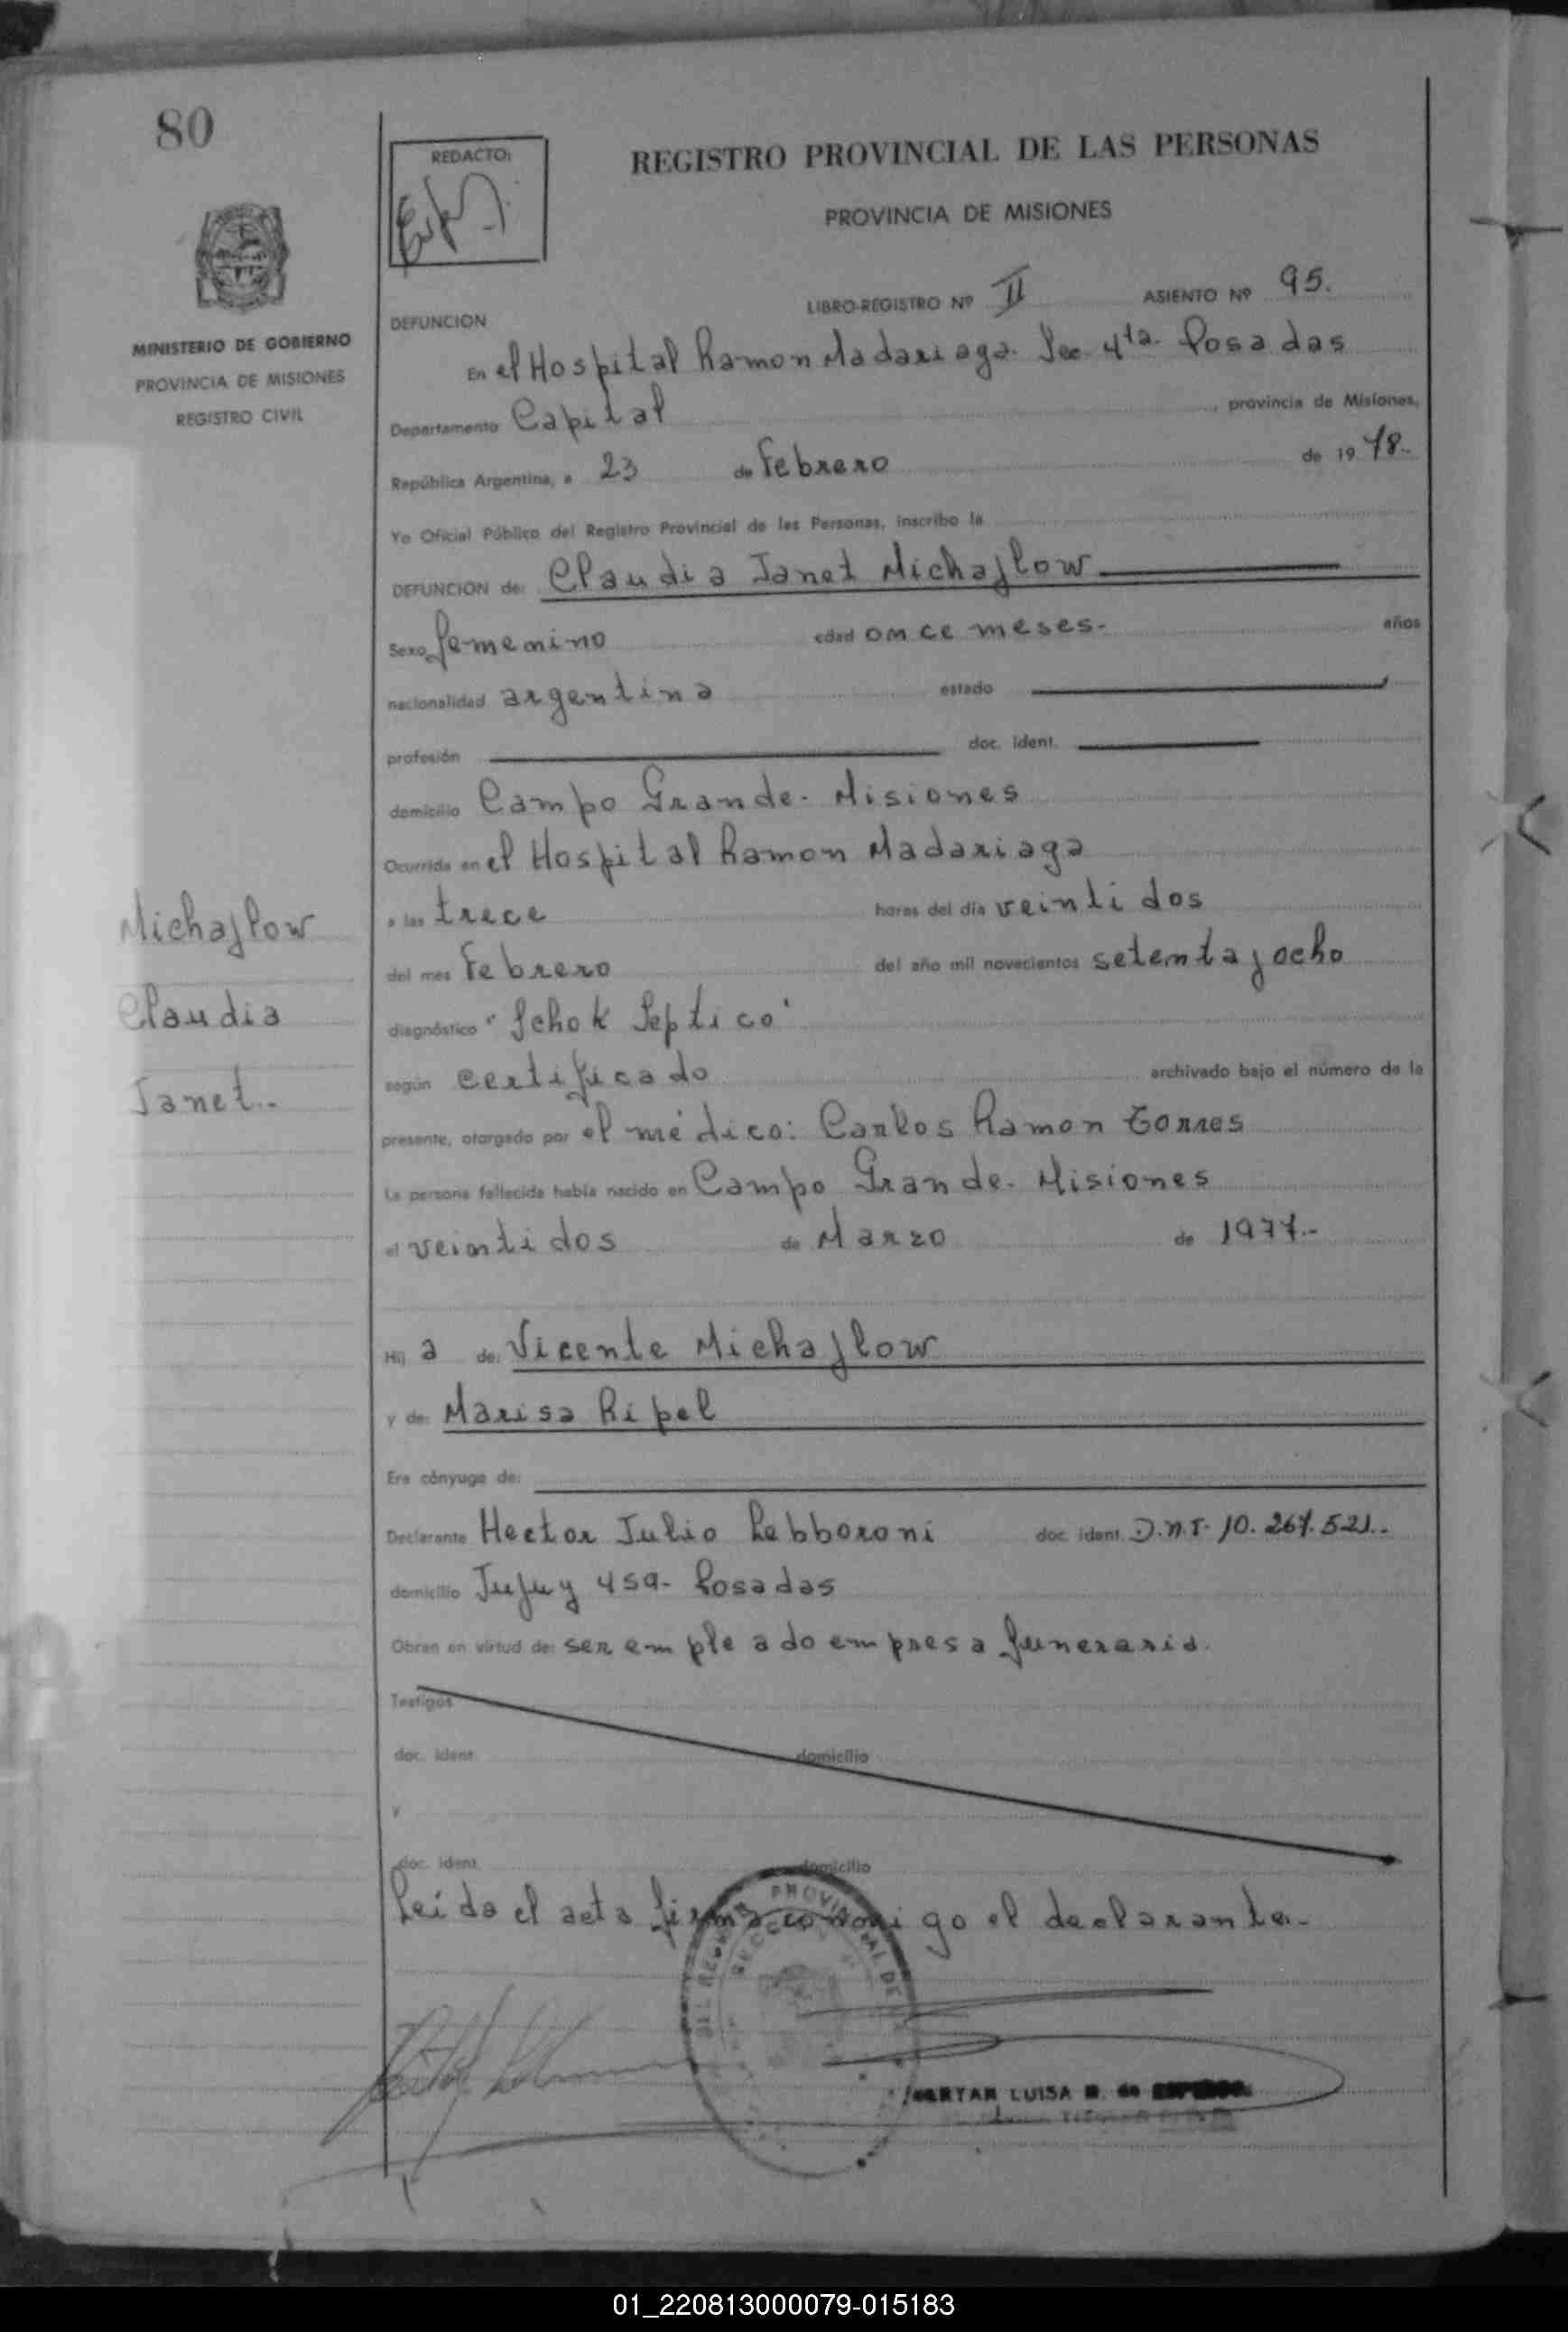 80
REDACTO:
REGISTRO PROVINCIAL DE LAS PERSONAS
PROVINCIA DE MISIONES
MINISTERIO DE GOBIERNO
PROVINCIA DE MISIONES
REGISTRO CIVIL
LIBRO-REGISTRO Nº II ASIENTO Nº 95.
DEFUNCION
En el Hospital Ramon Madariaga. Sec. 4ta. Posadas
Departamento Capital, provincia de Misiones,
República Argentina, a 23 de Febrero de 1978.
Yo Oficial Público del Registro Provincial de las Personas, inscribo la
DEFUNCION de: Claudia Janet Michajlow
Sexo femenino edad once meses.- años
nacionalidad argentina estado
profesión doc. ident.
domicilio Campo Grande. Misiones
Ocurrida en el Hospital Ramon Madariaga
a las trece horas del día veintidos
del mes Febrero del año mil novecientos setenta y ocho
diagnóstico "Schok Septico"
según certificado archivado bajo el número de la
presente, otorgado por el médico: Carlos Ramon Torres
La persona fallecida había nacido en Campo Grande. Misiones
el veintidos de Marzo de 1977.-
Hij a de: Vicente Michajlow
y de: Marisa Ripel
Era cónyuge de:
Declarante Hector Julio Lebboroni doc. ident. D.N.I. 10.267.521.-
domicilio Jujuy 459- Posadas
Obran en virtud de: ser empleado empresa funeraria.
Testigos
doc. ident. domicilio
y
doc. ident. domicilio
Leída el acta firma conmigo el declarante.-
Michajlow
Claudia
Janet.-
PROVINCIAL DE
LUISA
01_220813000079-015183